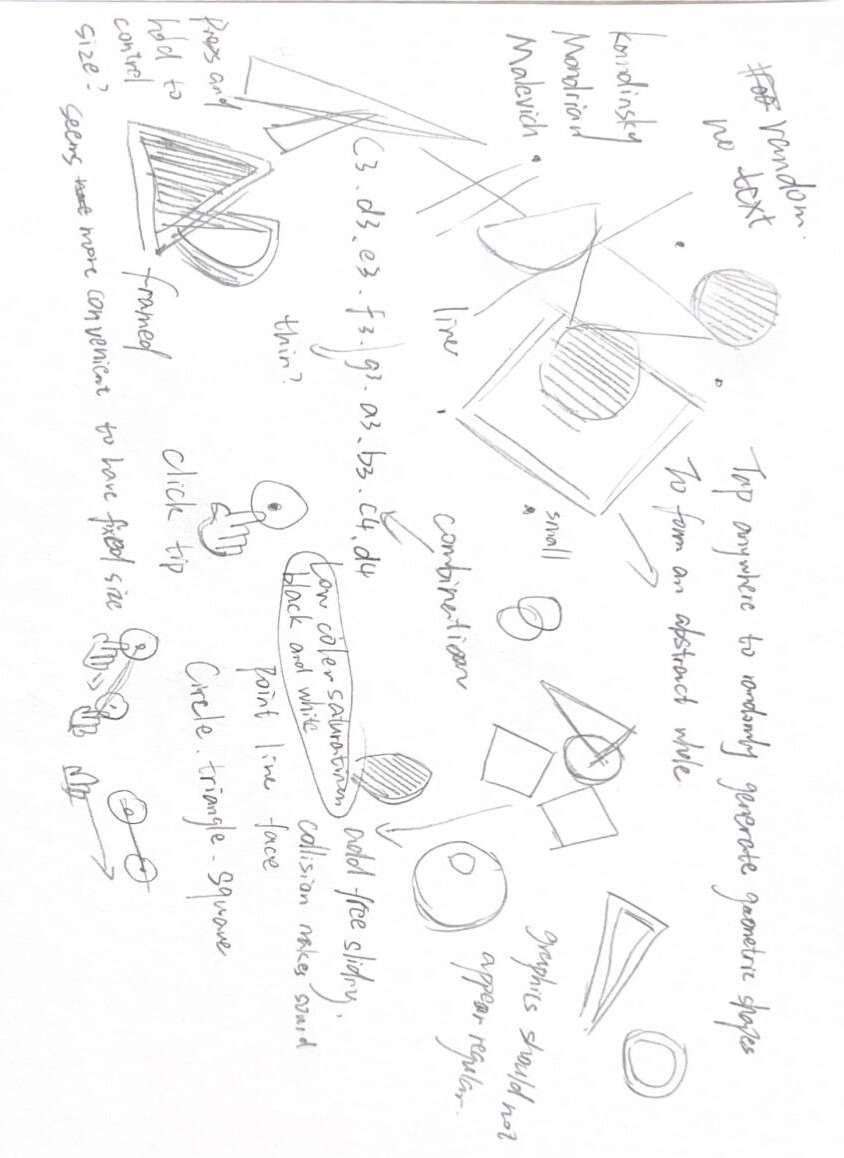 random.
no text
Tap anywhere to randomly generate geometric shapes
To form an abstract whole
kandinsky
Mondrian
Malevich
small
graphics should not
appear regular.
line
combination
C3. d3. e3. f3. g3. a3. b3. c4. d4
thin?
Low color saturation
black and white
add free sliding.
collision makes sound
point line face
Circle. triangle. square
Press and
hold to
control
size?
click tip
framed
seems more convenient to have fixed size